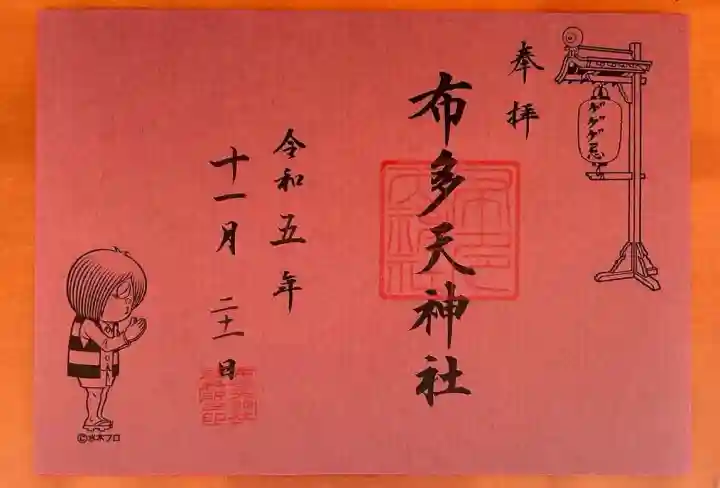 奉拝
ゲゲゲ忌
布多天神社
令和五年
十一月 二十一日
©水木プロ